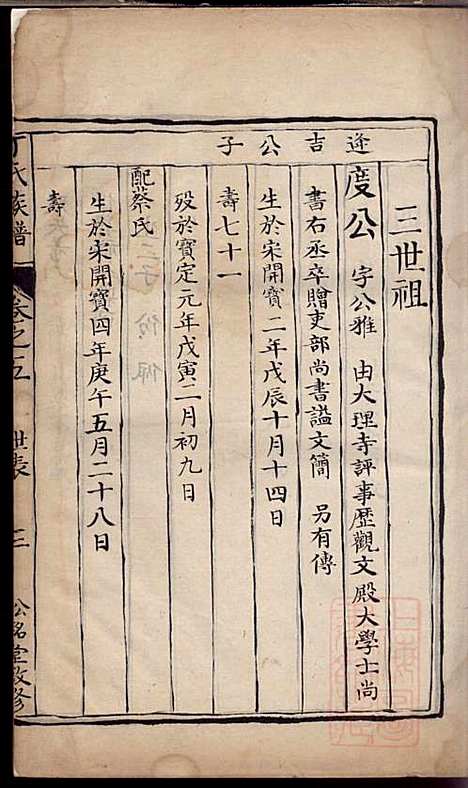 三世祖
逄吉公子
度公 字公雅 由大理寺評事歷觀文殿大學士尚
書右丞卒贈吏部尚書謚文簡 另有傳
生於宋開寶二年戊辰十月十四日
壽七十一
歿於寶定元年戊寅二月初九日
配蔡氏
生於宋開寶四年庚午五月二十八日
壽
丁氏族譜 卷之五 世表 三 公銘堂改修